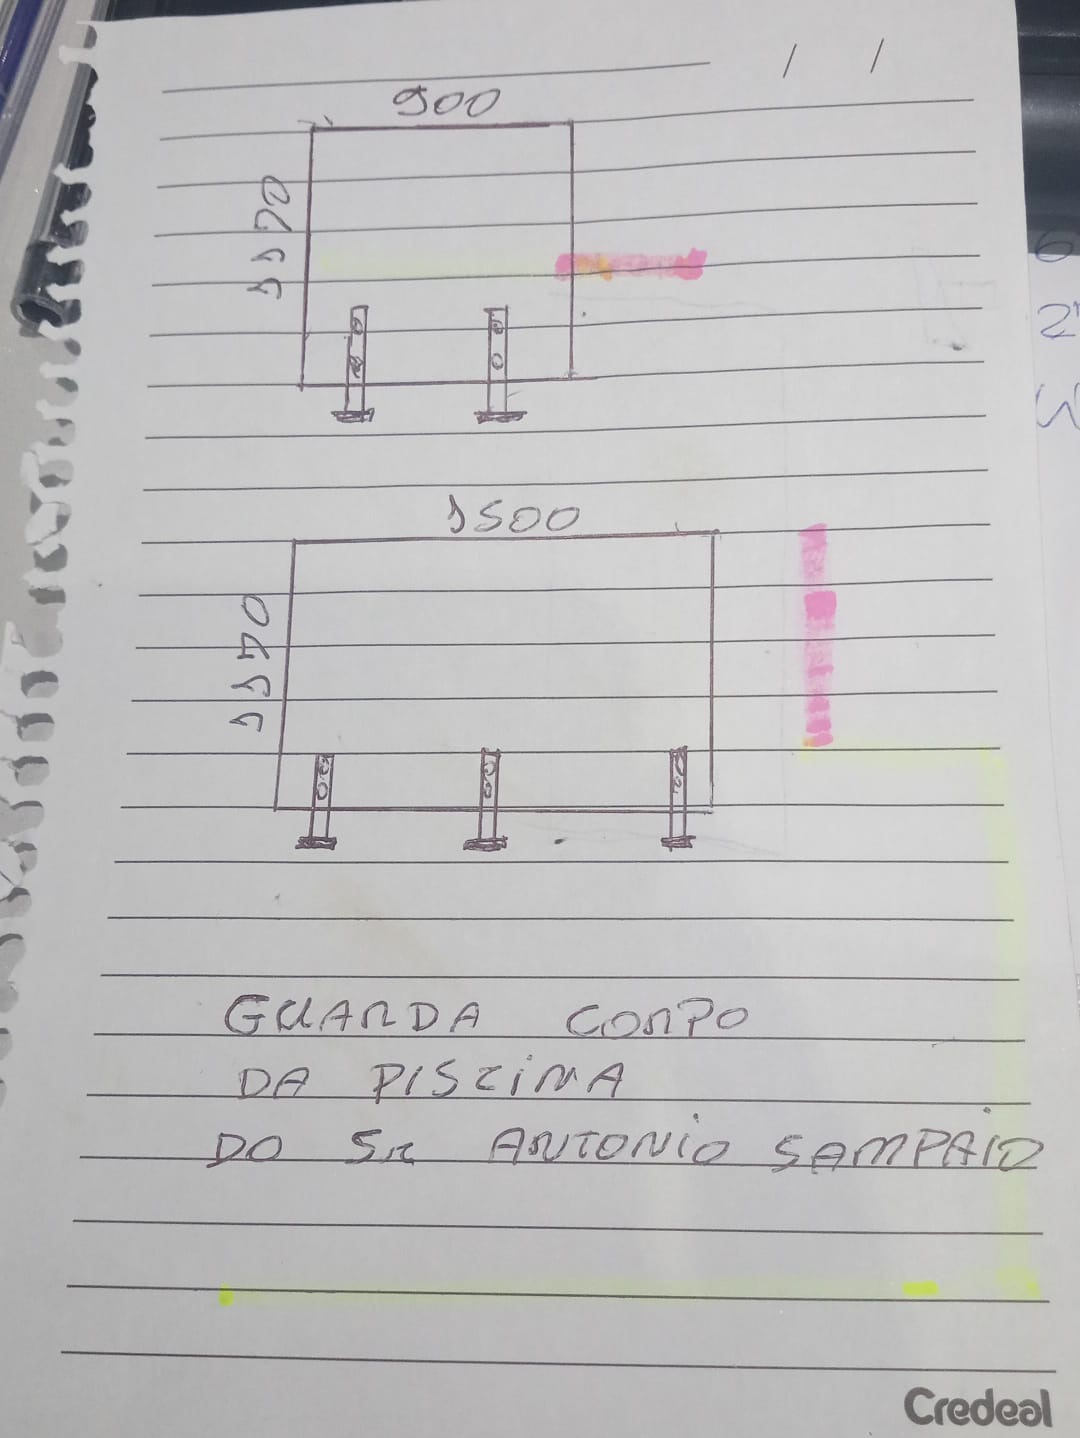 / /
900
1170
1500
1170
GUARDA CORPO
DA PISCINA
DO SR ANTONIO SAMPAIO
Credeal